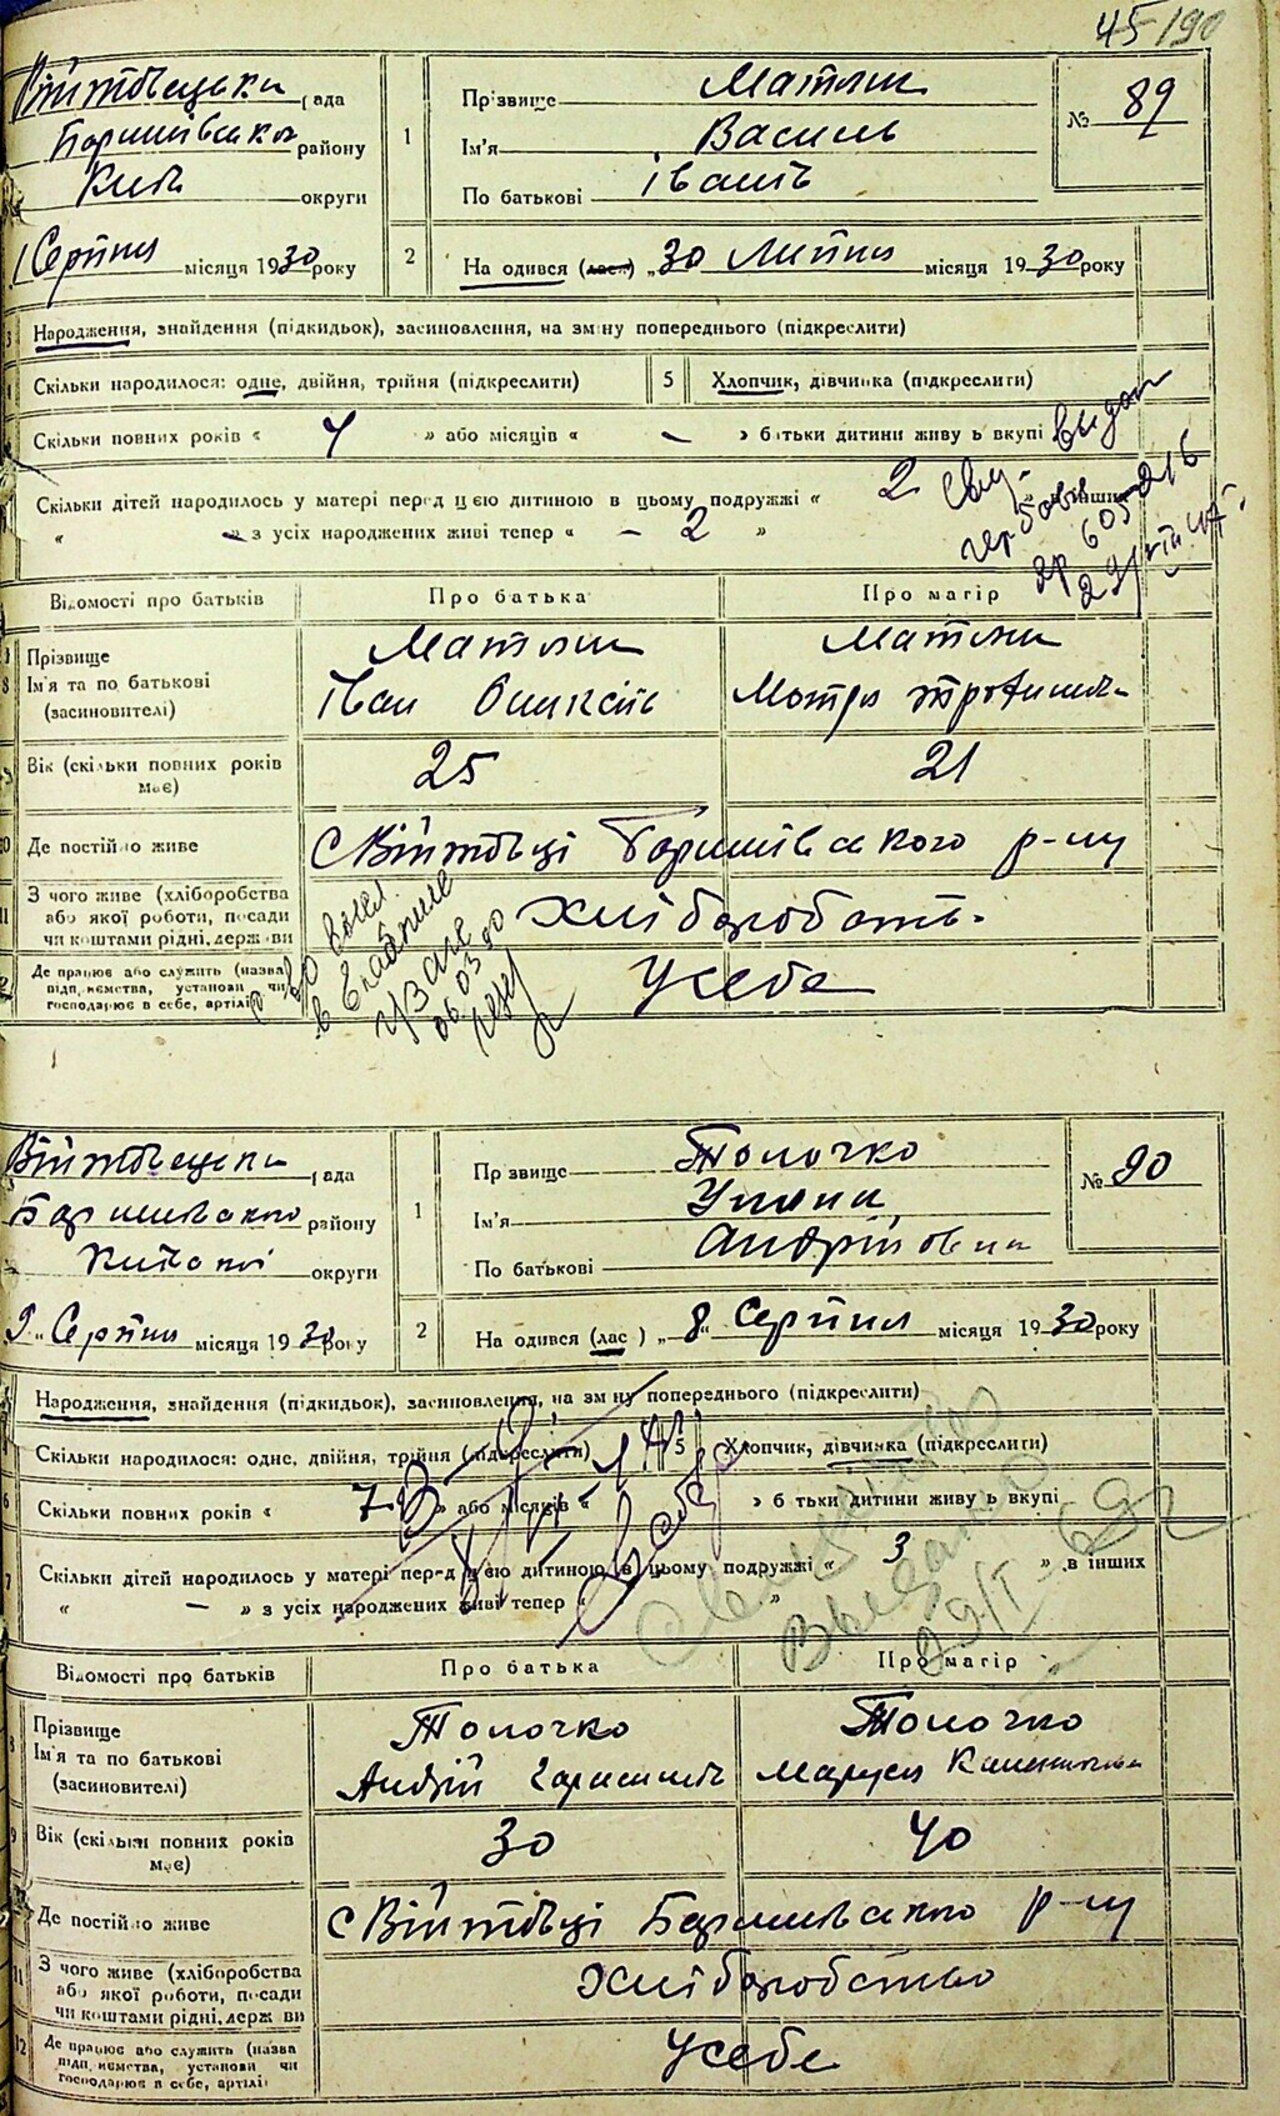 45 190
Війтовецька рада
Баришівського району
Київ округи
1 Серпня місяця 1930 року
1
Прізвище Матяш
Ім'я Василь
По батькові Іванів
№ 89
2
На одився (лась) „30 Липня місяця 1930 року
3 Народження, знайдення (підкидьок), засиновлення, на зміну попереднього (підкреслити)
Скільки народилося: одне, двійня, трійня (підкреслити)
5 Хлопчик, дівчинка (підкреслити)
Скільки повних років « 4 » або місяців « – » батьки дитини живуть вкупі
видан
Скільки дітей народилось у матері перед цією дитиною в цьому подружжі « 2 » в інших
« – » з усіх народжених живі тепер « – 2 »
Відомості про батьків
Про батька
Про матір
Прізвище
Ім'я та по батькові
(засиновителі)
Матяш
Іван
Матяш
Мотря
Вік (скільки повних років
має)
25
21
10 Де постійно живе
с Війтовці Баришівського р-ну
11 З чого живе (хліборобства
або якої роботи, посади
чи коштами рідні, держави
Хліборобств.
Де працює або служить (назва
підприємства, установи чи
господарює в себе, артілі
У себе
Війтовецька рада
Баришівського району
Київської округи
9 „ Серпня місяця 1930 року
1
Прізвище Толочко
Ім'я Уляна
По батькові Андріївна
№ 90
2
На одився (лас ) „8 „ Серпня місяця 1930 року
Народження, знайдення (підкидьок), засиновлення, на зміну попереднього (підкреслити)
Скільки народилося: одне, двійня, трійня (підкреслити)
5 Хлопчик, дівчинка (підкреслити)
6 Скільки повних років « 7 » або місяців « » батьки дитини живуть вкупі
7 Скільки дітей народилось у матері перед цією дитиною в цьому подружжі « 3 » в інших
« – » з усіх народжених живі тепер « »
Відомості про батьків
Про батька
Про матір
8 Прізвище
Ім'я та по батькові
(засиновителі)
Толочко
Андрій
Толочко
Маруся
9 Вік (скільки повних років
має)
30
40
Де постійно живе
с Війтовці Баришівського р-ну
11 З чого живе (хліборобства
або якої роботи, посади
чи коштами рідні, держави
Хліборобство
12 Де працює або служить (назва
підприємства, установи чи
господарює в себе, артілі
У себе